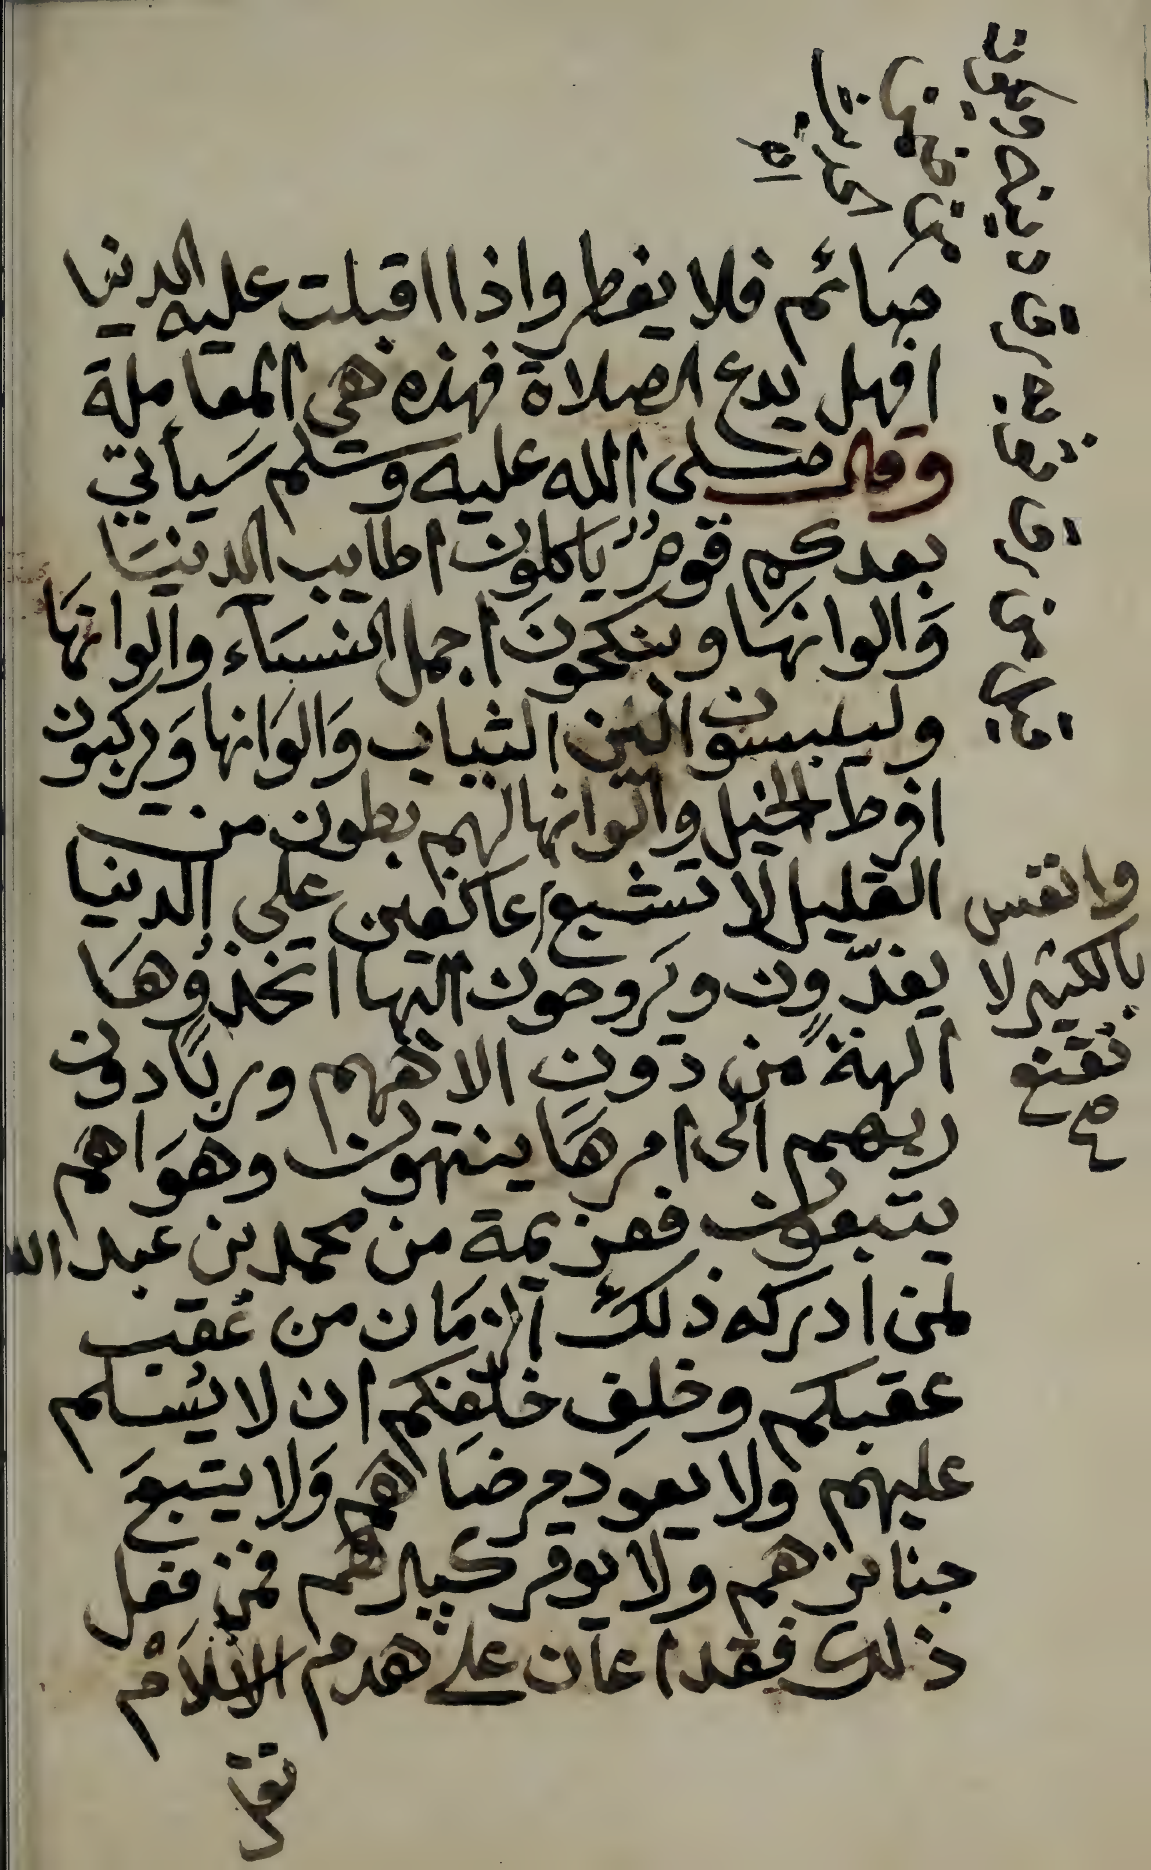 صائم فلا يفطر واذا اقبلت عليه الدنيا
افهل يدع الصلاة فهذه هي المعاملة
وقال صلى الله عليه وسلم سَيأتي
بعدكم قومٌ يَاكلون اطايب الدنيَا
وَالوانهَا وينكحونَ اجمل النسَآء والوانهَا
وليلبسون الين الثياب وَالوَانها وَيركبون
افرط الخيل والوانها لهم بطون من
القليل لا تشبع عاكفين على الدنيا
وانفس
بالكثير لا
تقنع
صح
يغدّون ويَروحون اليها اتخذوُهَا
الهةً من دون الاههم وربًا دون
ربهم الى امرهَا ينتهون وهوَاهم
يتبعون فعزيمة من محمد بن عبد الله
لمن ادركه ذلك الزمَان من عُقب
عقبكم وخلف خلفكم ان لا يسَلم
عليهم ولا يعود مرضَاهم وَلا يتبعَ
جنائزهم ولا يوقر كبيرهم فمن فعل
ذلك فقد اعان على هدم الاسلام